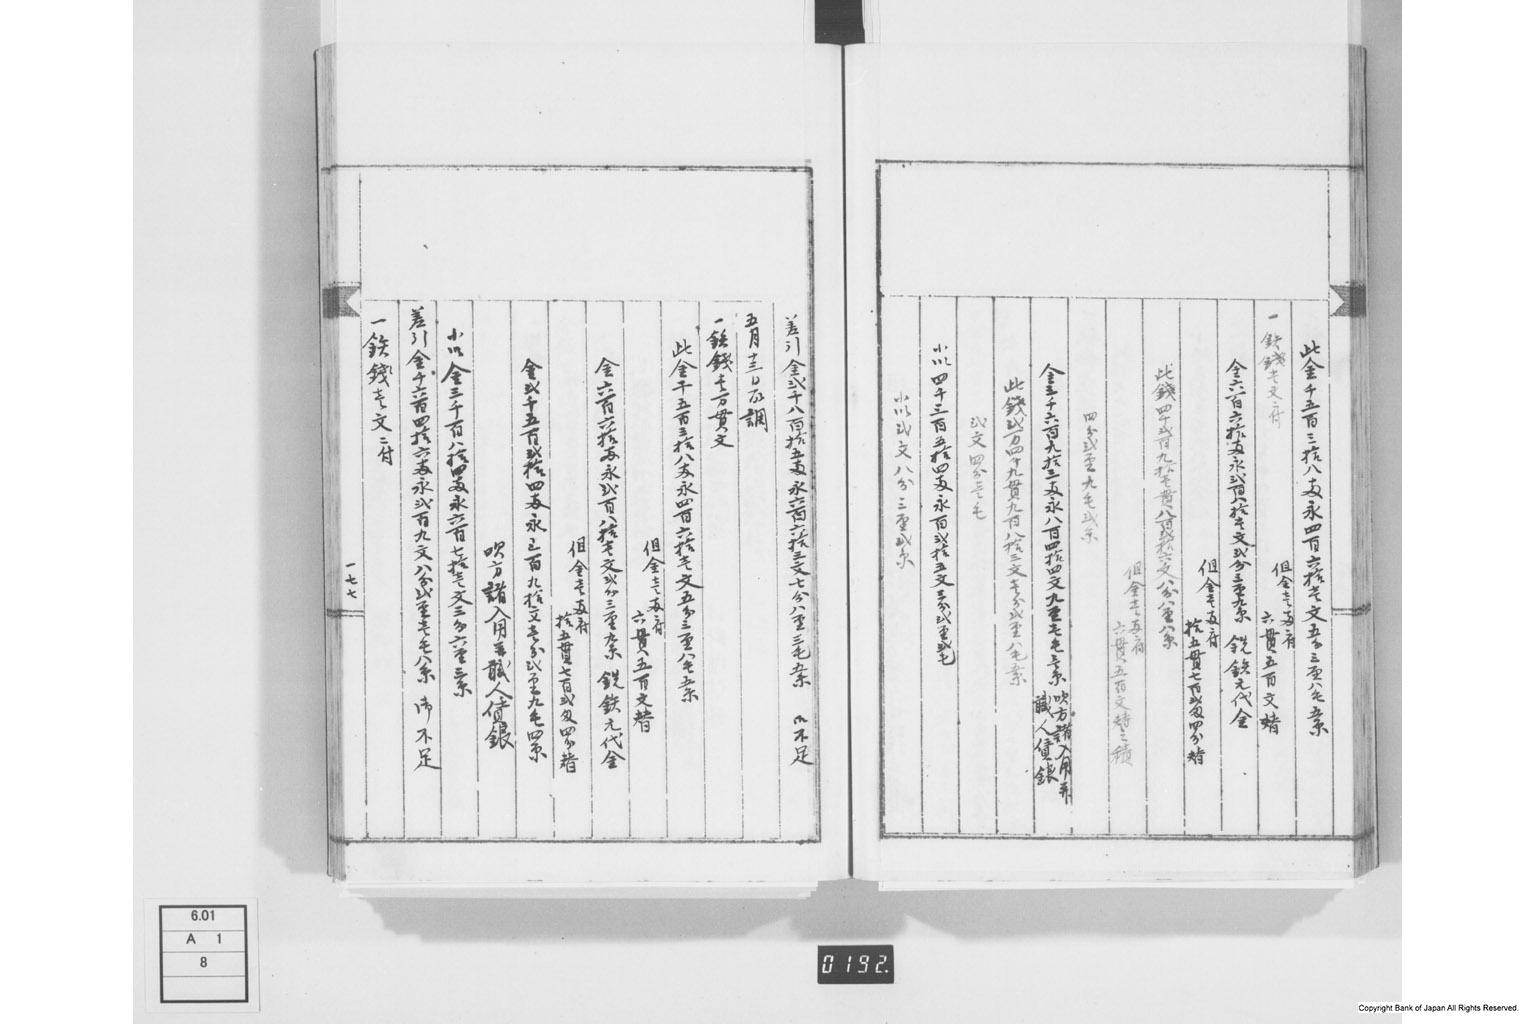 此金千五百三拾八両永四百六拾壱文五分三厘八毛五糸
但金壱両ニ付
六貫五百文替
一鉄銭壱文ニ付
金六百六拾両永弐百八拾壱文弐分三厘九糸 銑鉄元代金
但金壱両ニ付
拾五貫七百弐匁四分替
此銭四千弐百九拾壱貫八百弐拾六文八分八厘八糸
但金壱両ニ付
六貫五百文替之積
四分弐厘九毛弐糸
金三千六百九拾三両永八百四拾四文九厘壱毛三糸 吹方諸入用并
職人賃銀
此銭弐万四千九貫九百八拾三文壱分弐厘八毛五糸
弐文四分壱毛
小以四千三百五拾四両永百弐拾五文三分弐厘弐毛
小以弐文八分三厘弐糸
差引金弐千八百拾五両永六百六拾三文七分八厘三毛五糸 御不足
五月十三日石調
一鉄銭壱万貫文
此金千五百三拾八両永四百六拾壱文五分三厘八毛五糸
但金壱両ニ付
六貫五百文替
金六百六拾両永弐百八拾壱文弐分三厘九糸 銑鉄元代金
但金壱両ニ付
拾五貫七百弐匁四分替
金弐千五百弐拾四両永三百九拾文壱分弐厘九毛四糸
吹方諸入用并職人賃銀
小以金三千百八拾四両永六百七拾壱文三分六厘三糸
差引金千六百四拾六両永弐百九文八分弐厘壱毛八糸 御不足
一鉄銭壱文ニ付
一七七
6.01
A 1
8
0192.
Copyright Bank of Japan All Rights Reserved.